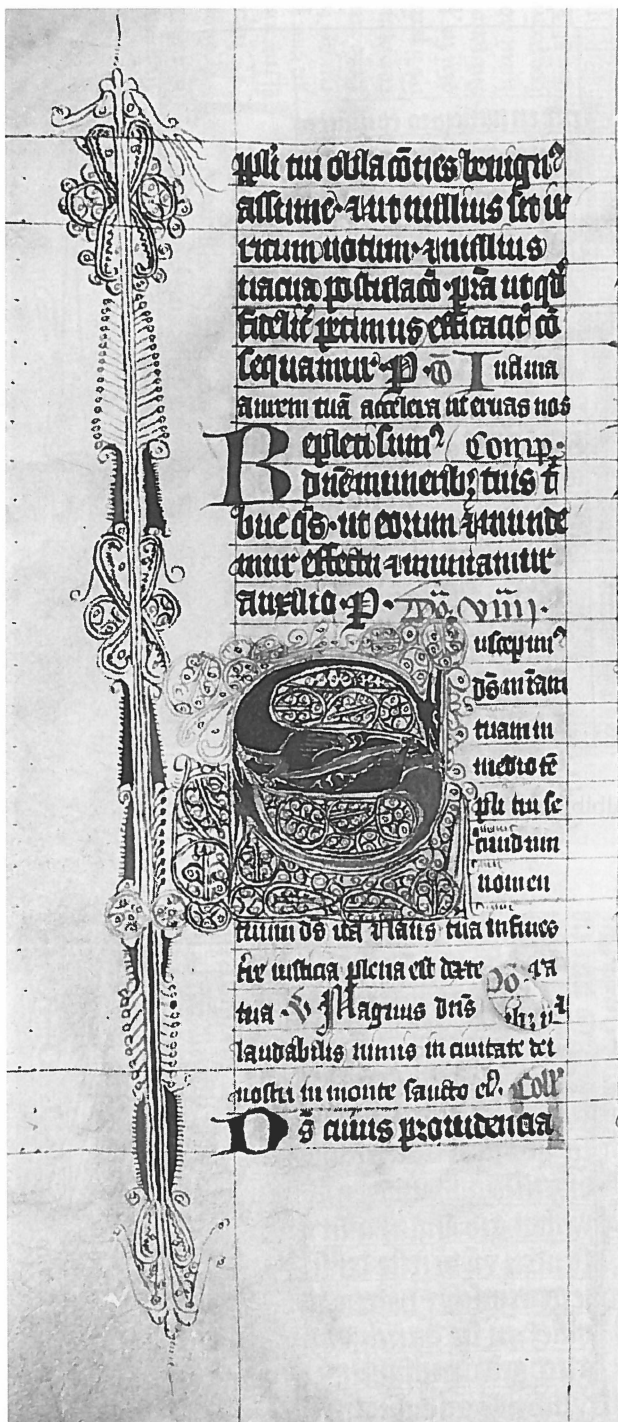 ppli tui oblacōnes benign⁹
assume · ⁊ ut nullius sit ir
ritum uotum · ⁊ nullius
uacua postulacō · pra ut qd̄
fidelit̄ petimus efficacit̄ cō
sequamur · P · cō Inclina
aurem tuā accelera ut eruas nos
Repleti sum⁹ Comp:
dn̄e munerib; tuis tͥ
bue qs̄ · ut eorum ⁊ munde
mur effectu ⁊ muniamur
auxilio · P · Do. VIIII.
Suscepim⁹
ds̄ miam
tuam in
medio tē
pli tui se
cundum
nomen
tuum ds̄ ita ⁊ laus tua in fines
tr̄e iusticia plena est dexte Do. ra
tua · V Magnus dn̄s
laudabilis nimis in ciuitate dei
nostri in monte sancto ei⁹. Coll'
Ds̄ cuius prouidencia